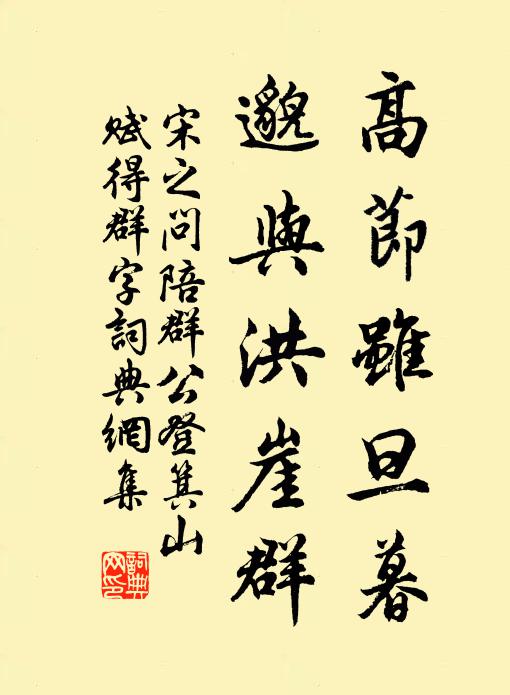 高節雖旦暮
邈與洪崖群
宋之問陪群公登箕山
賦得群字詞典網集
詞典
网印